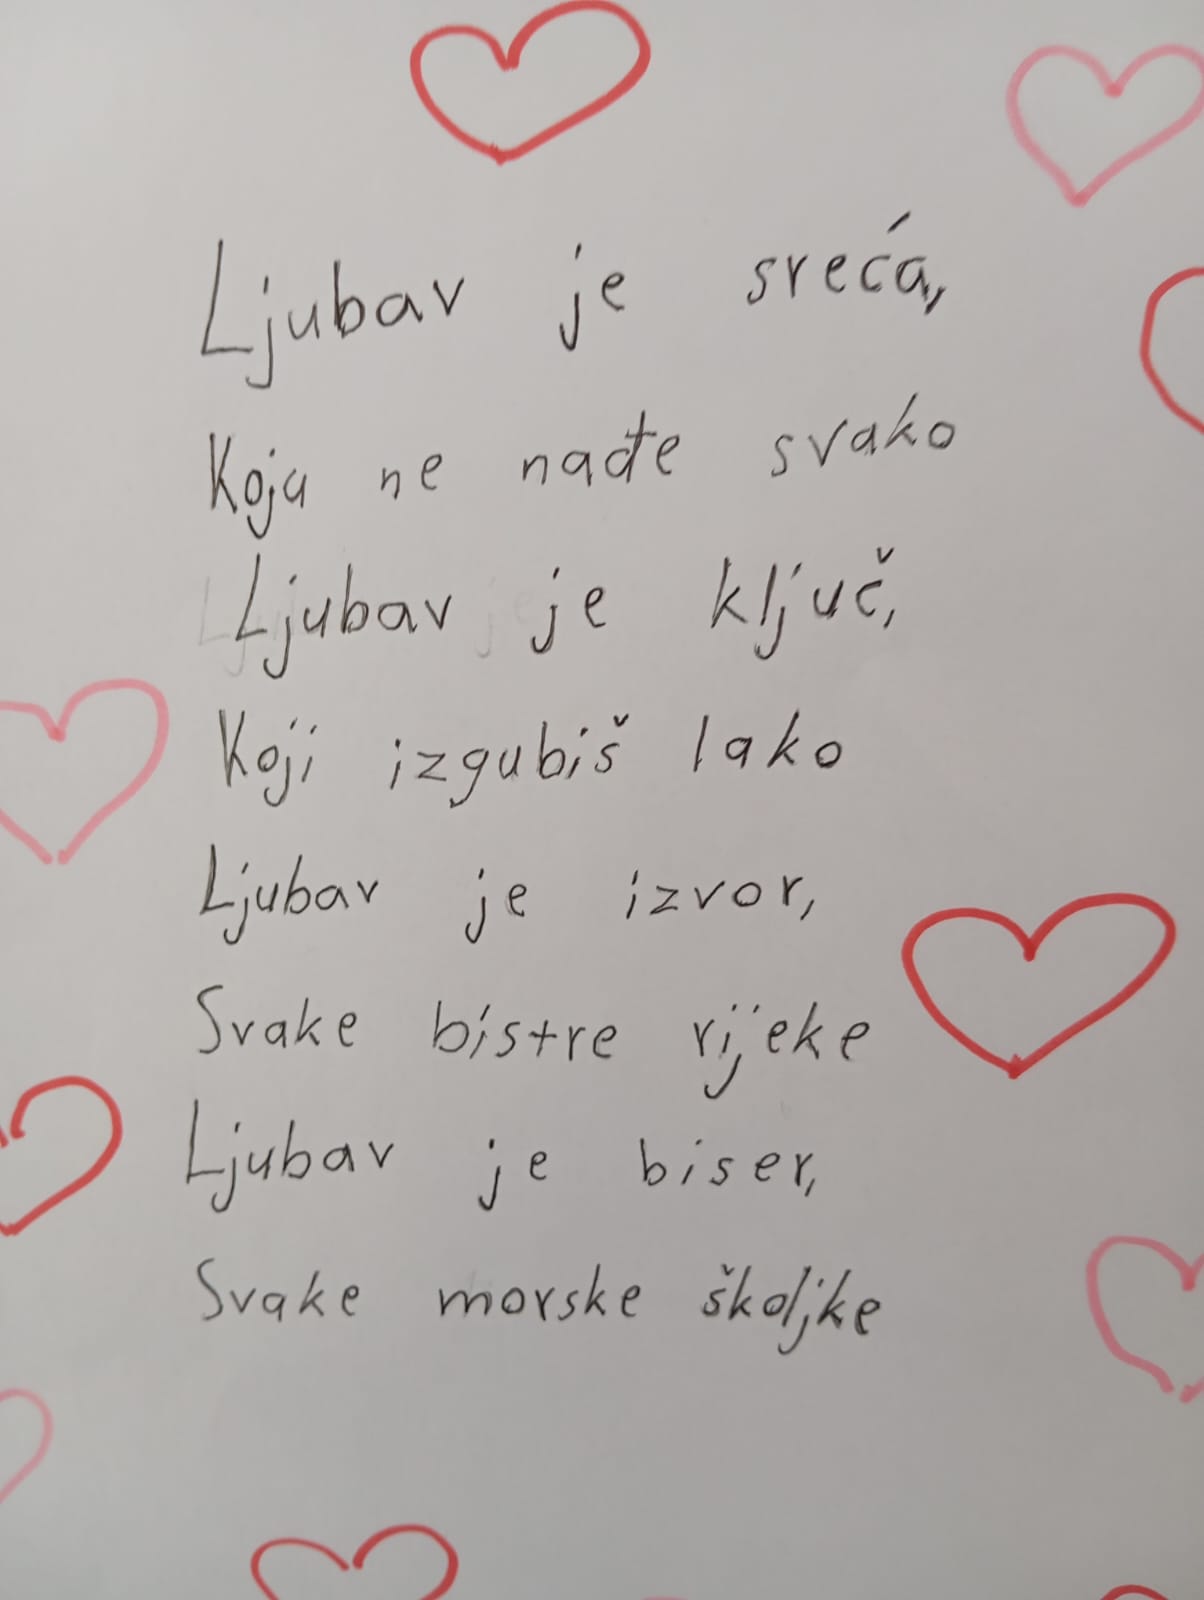 Ljubav je sreća,
Koja ne nađe svako
Ljubav je ključ,
Koji izgubiš lako
Ljubav je izvor,
Svake bistre rijeke
Ljubav je biser,
Svake morske školjke